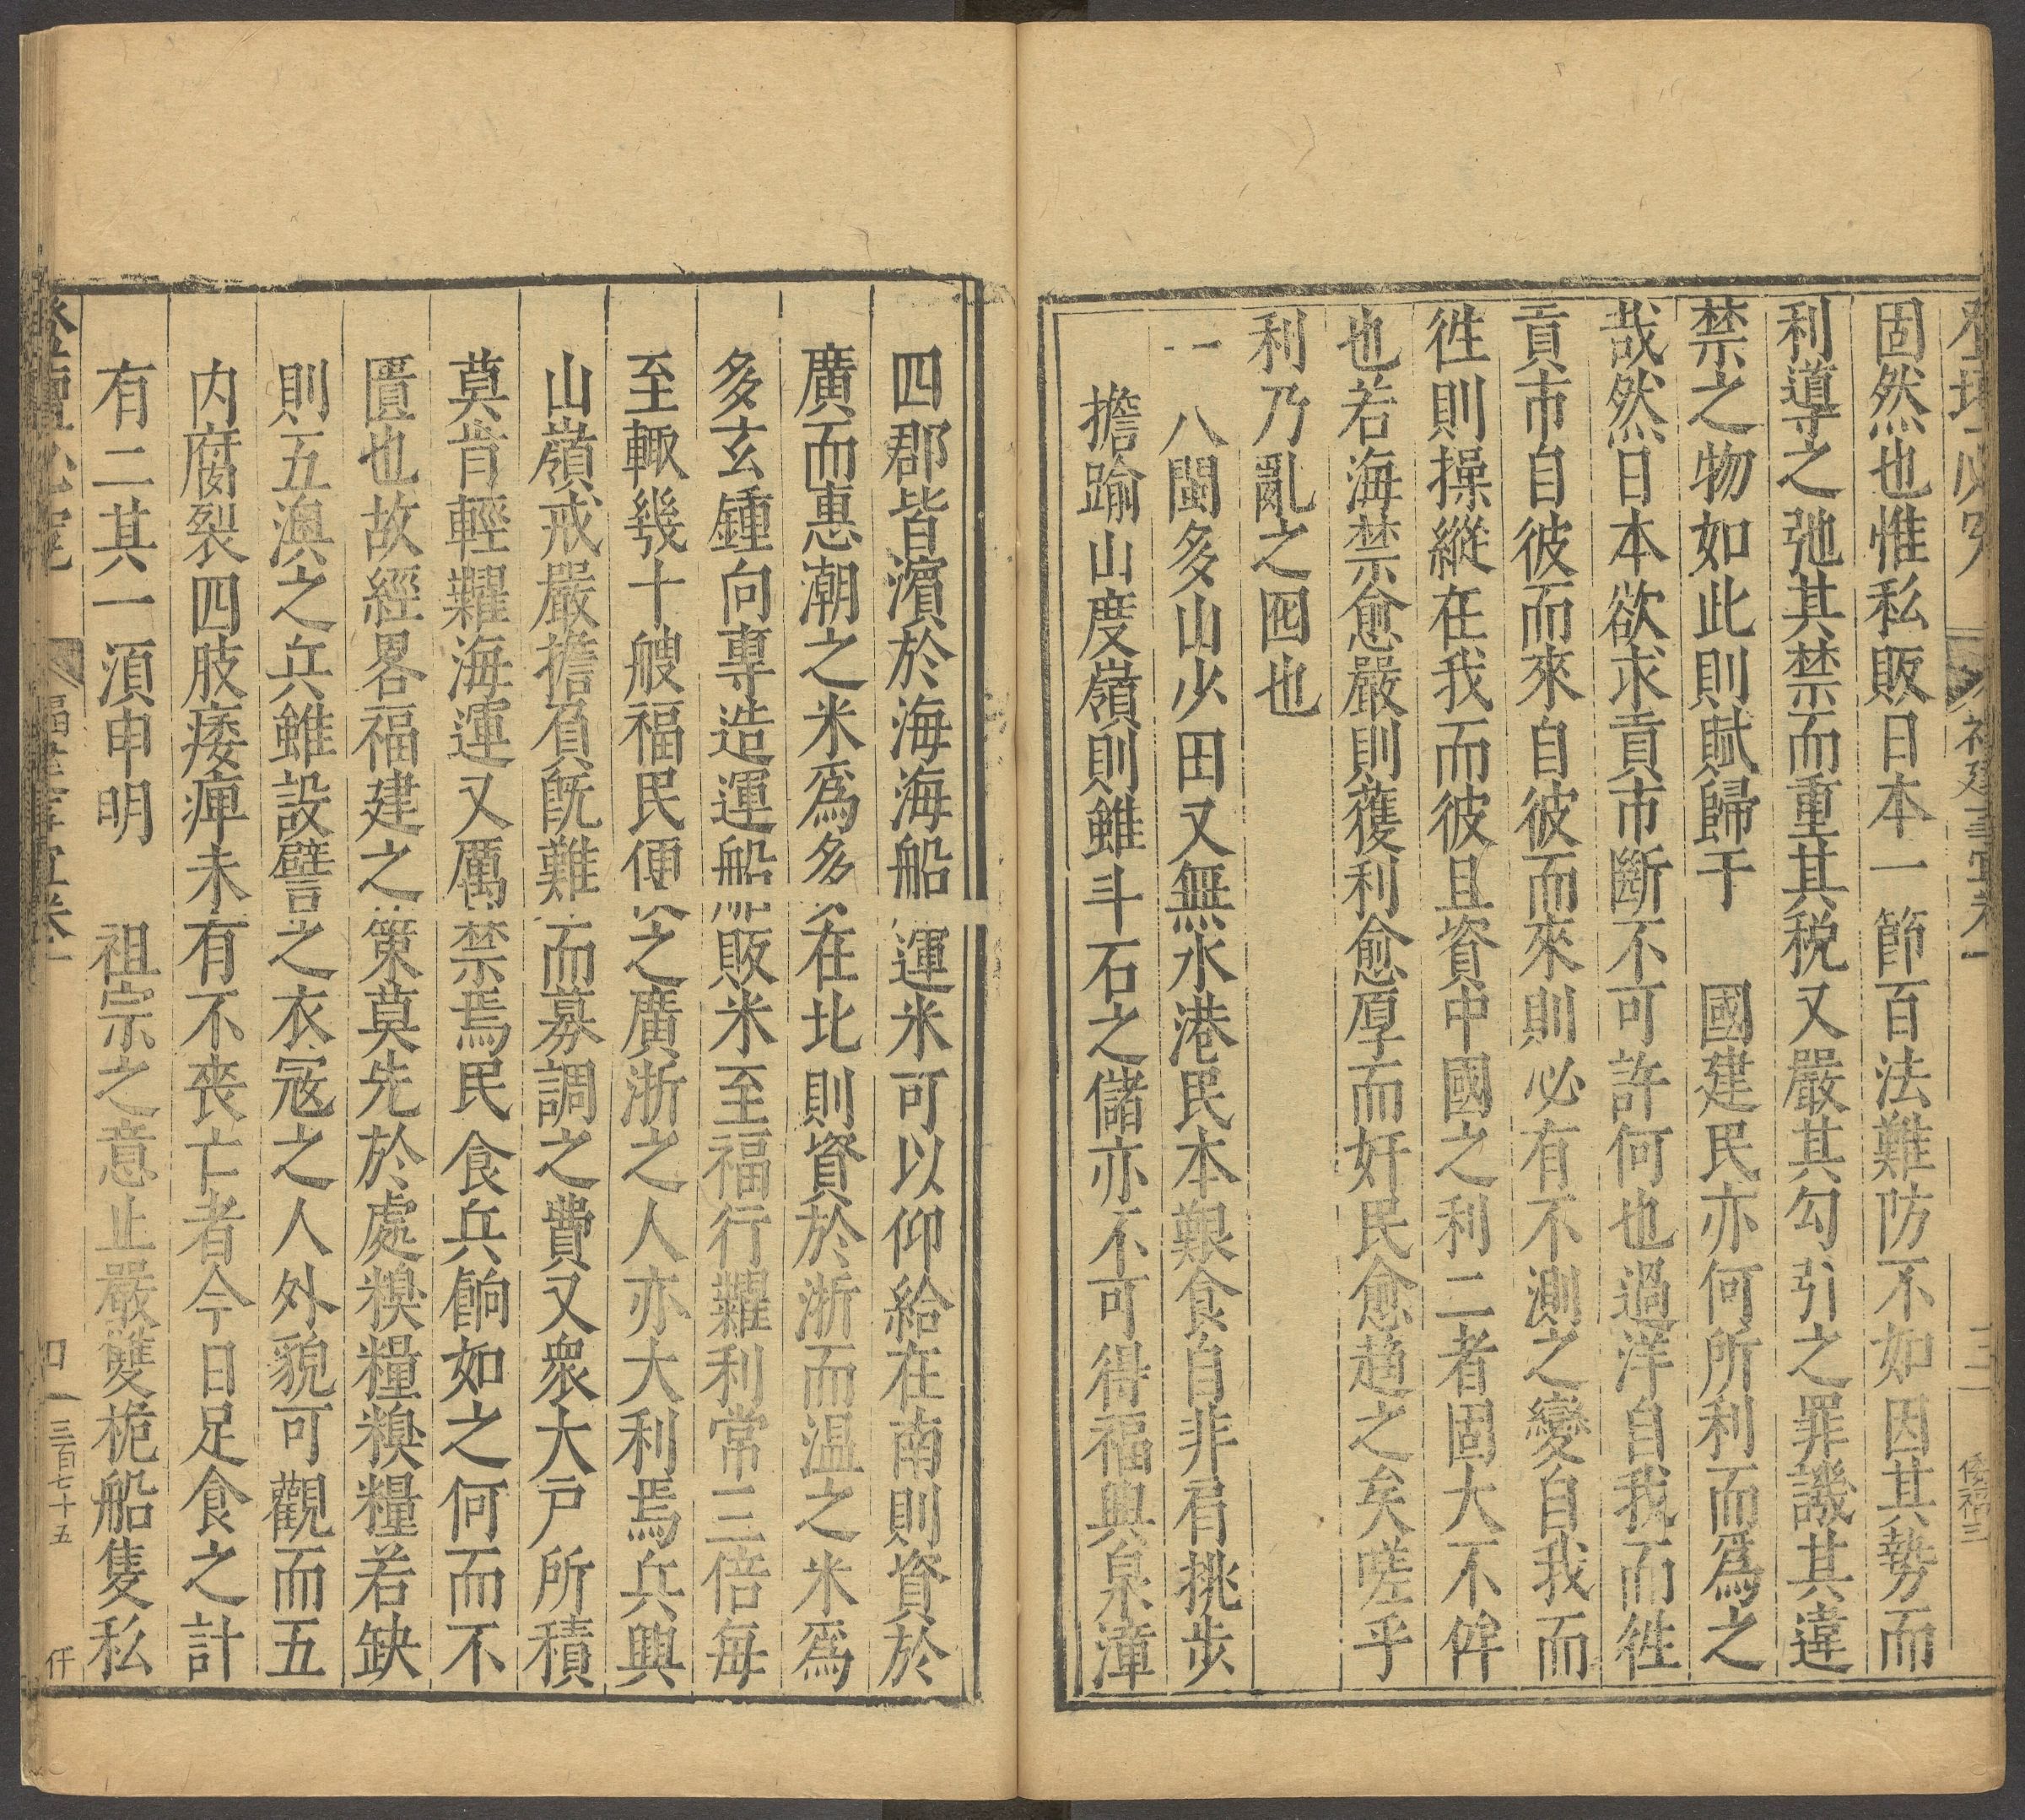 固然也惟私販日本一節百法難防不如因其勢而
利導之弛其禁而重其税又嚴其勾引之罪譏其違
禁之物如此則賦歸于　國建民亦何所利而爲之
哉然日本欲求貢市斷不可許何也過洋自我而徃
貢市自彼而來自彼而來則必有不測之變自我而
徃則操縱在我而彼且資中國之利二者固大不侔
也若海禁愈嚴則獲利愈厚而奸民愈趨之矣嗟乎
利乃亂之囮也
一八閩多山少田又無水港民本艱食自非肩挑步
擔踰山度嶺則雖斗石之儲亦不可得福興泉漳
四郡皆濱於海海船運米可以仰給在南則資於
廣而惠潮之米爲多在北則資於浙而温之米爲
多玄鍾向專造運船販米至福行糶利常三倍每
至輙幾十艘福民便之廣浙之人亦大利焉兵興
山嶺戒嚴擔負既難而募調之費又衆大戸所積
莫肯輕糶海運又厲禁焉民食兵餉如之何而不
匱也故經畧福建之策莫先於處糗糧糗糧若缺
則五澳之兵雖設譬之衣冦之人外貌可觀而五
内腐裂四肢痿痺未有不丧亡者今日足食之計
有二其一湏申明　祖宗之意止嚴雙桅船隻私
福建事宜卷一
三百七十五
仟